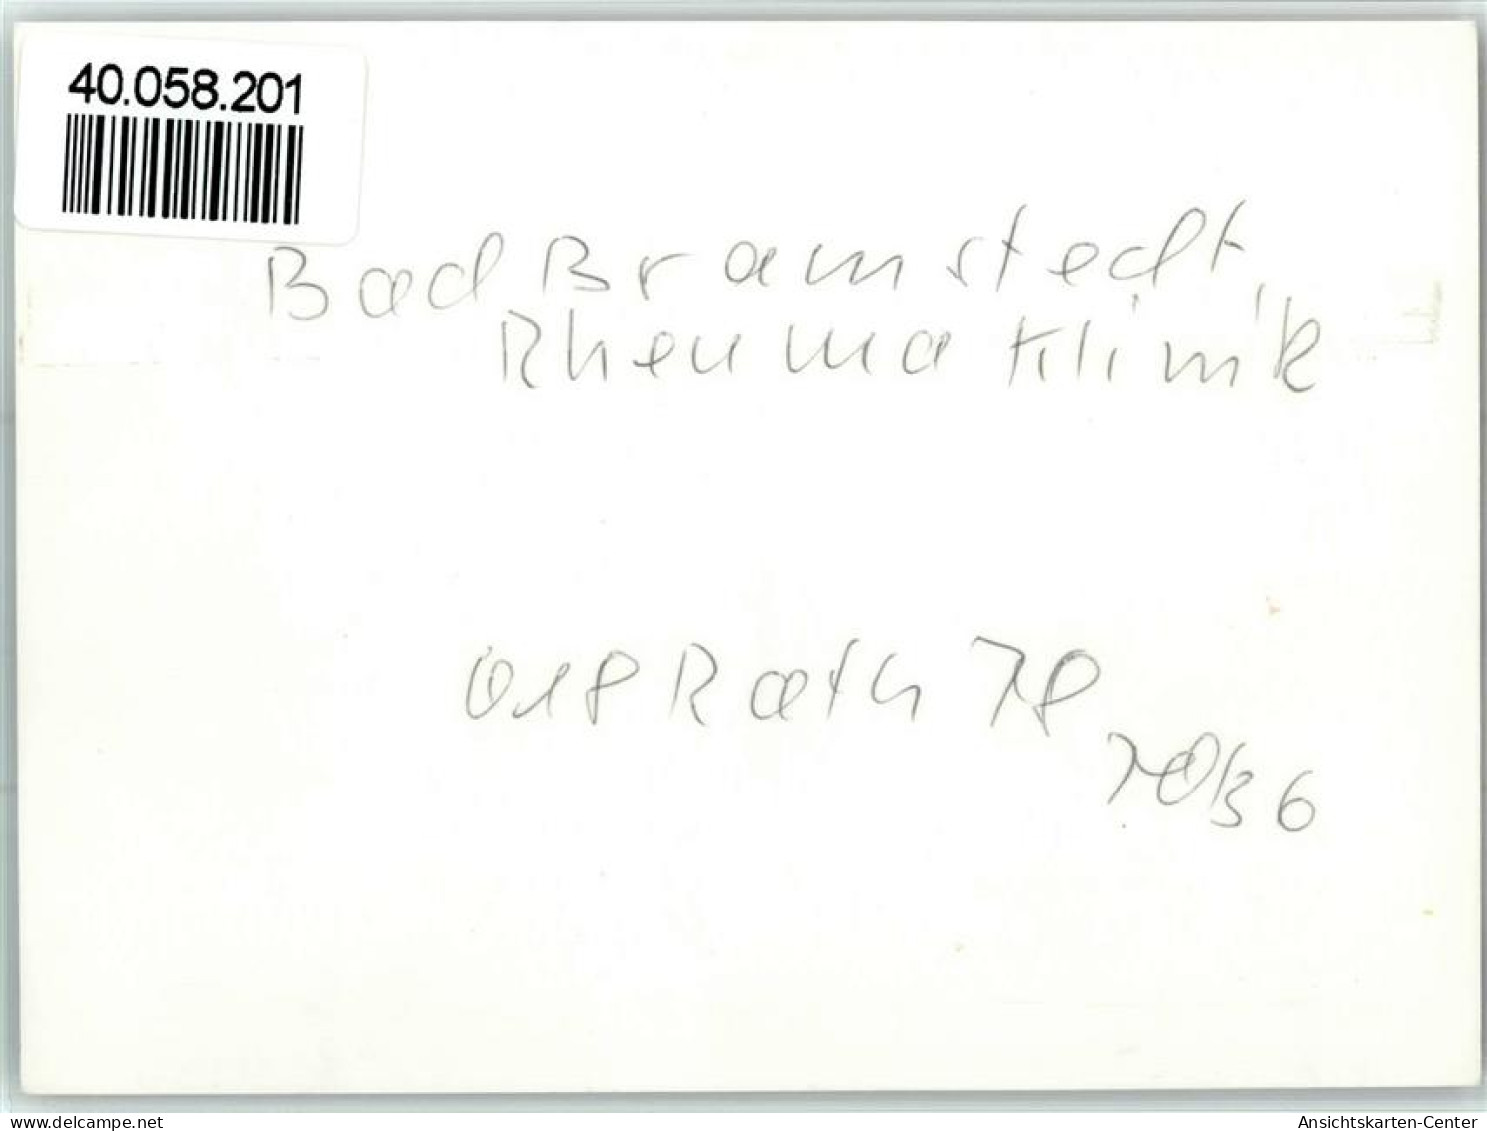 40.058.201
Bad Bramstedt,
Rheumaklinik
Rath 78
36
delcampe.net
Ansichtskarten-Center